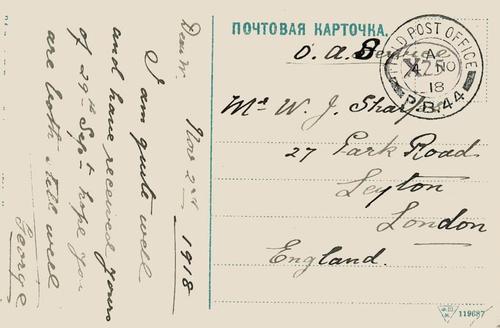 ПОЧТОВАЯ КАРТОЧКА.
O.A.S
FIELD POST OFFICE
A
4 NO
18
P.B.44
Mr W. J. Sharp
27 Park Road
Leyton
London
England.
Nov 2nd 1918
Dear W.
I am quite well
and have received yours
of 29th Sept hope you
are both still well
George
119687